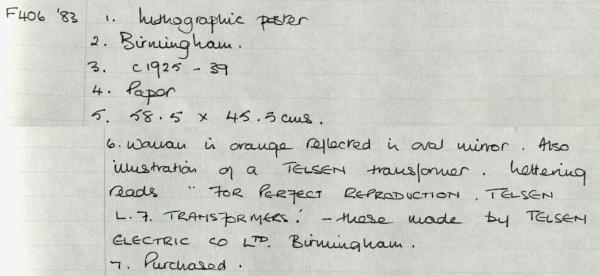 F406 '83 1. Lithographic poster
2. Birmingham.
3. c1925 - 39
4. Paper
5. 58.5 x 45.5 cms.
6. Woman in orange reflected in oval mirror. Also
illustration of a TELSEN transformer. Lettering
reads "FOR PERFECT REPRODUCTION. TELSEN
L.F. TRANSFORMERS." - these made by TELSEN
ELECTRIC CO LTD. Birmingham.
7. Purchased.